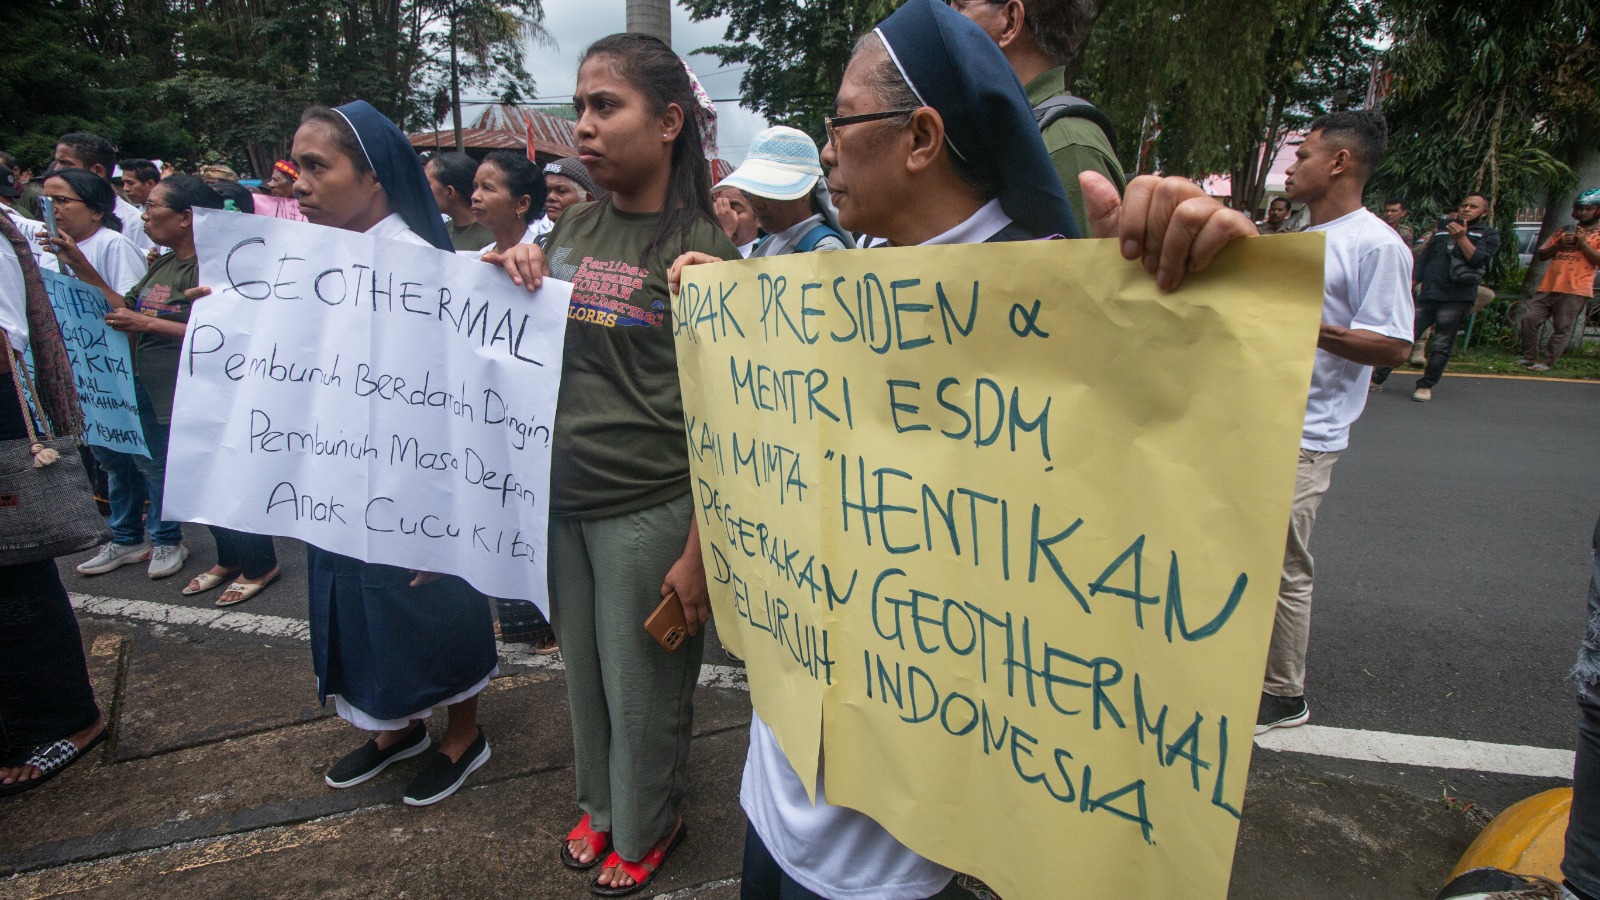 GEOTHERMAL
Pembunuh BerdaraH Dingin,
Pembunuh Masa Depan
Anak CUCU KITA
BAPAK PRESIDEN &
MENTRI ESDM,
KAMI MINTA "HENTIKAN
PERGERAKAN GEOTHERMAL
DI SELURUH INDONESIA
Terlibat
Bersama
KORBAN
Geothermal
FLORES
GADA
KITA
KEJAHAT